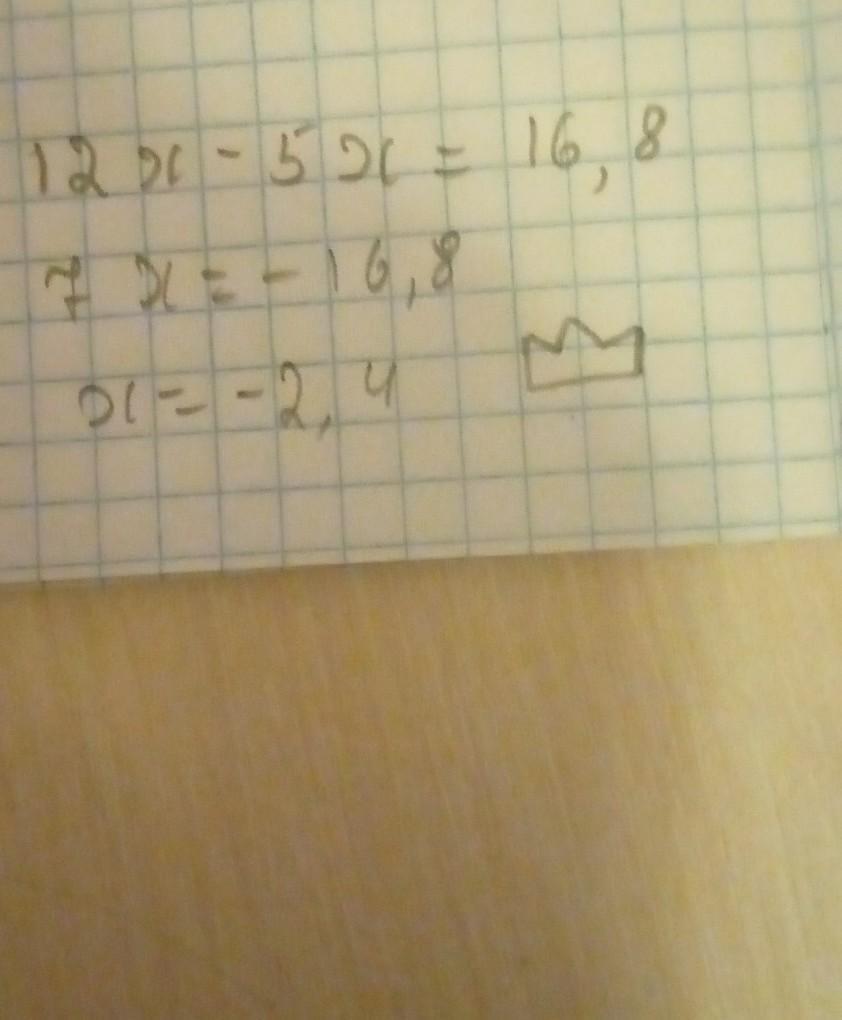 12x - 5x = 16,8
7x = -16,8
x = -2,4